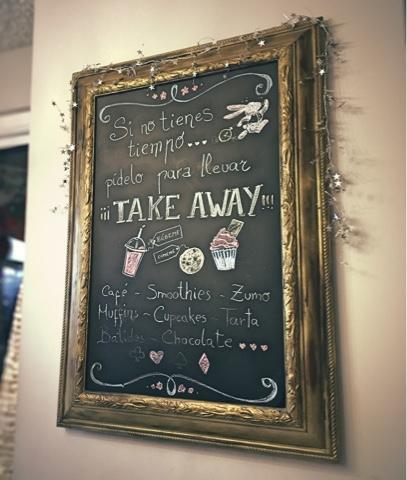 Si no tienes
tiempo...
pídelo para llevar
¡¡¡TAKE AWAY!!!
BÉBEME
CÓMEME
Café - Smoothies - Zumo
Muffins - Cupcakes - Tarta
Batidos - Chocolate